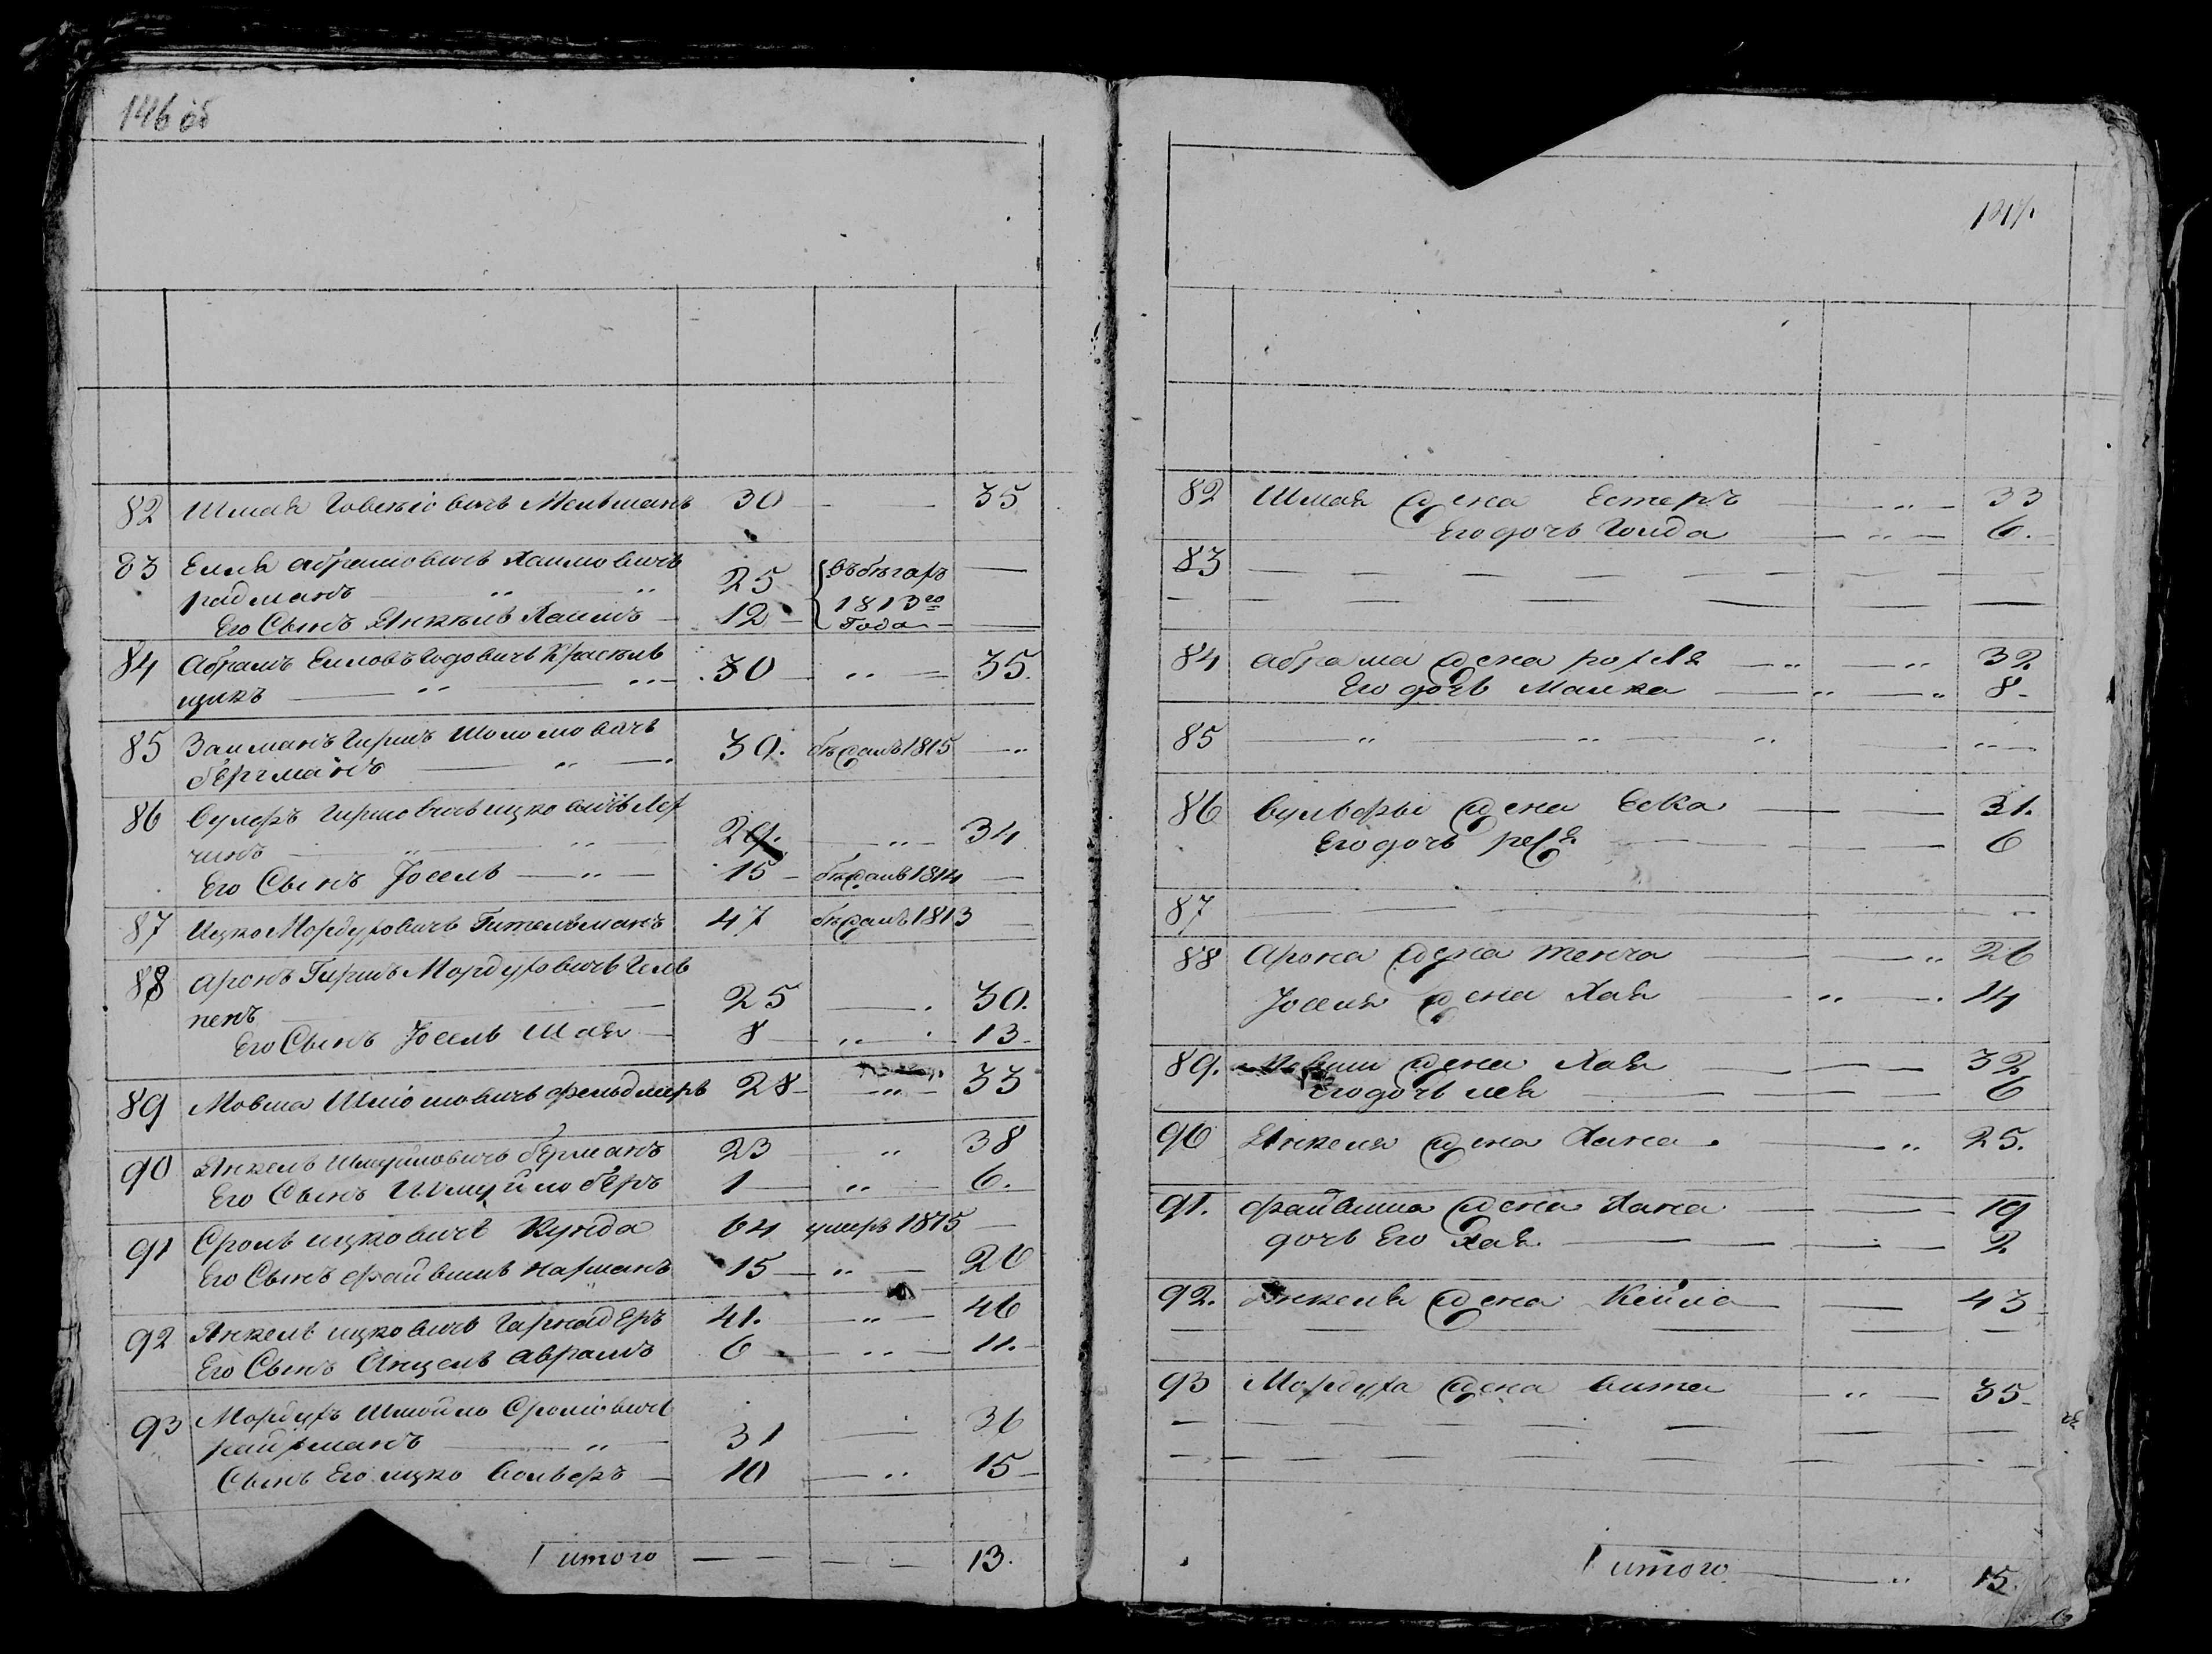 146 об
82 Шмая Іовсѣіовичъ Мельманъ 30 — 35
83 Еиля абрамовичъ Хаимовичъ
радманъ 25 въ бѣгахъ —
Его Сынъ Янкель Хаимъ 12 1813го Года —
84 Абрамъ Еиловъ Іодовичъ Красиль
щикъ 30 — 35.
85 Залманъ Гиршъ Шоломовичъ
бергманъ 30. бѣжалъ 1815 —
86 Вулфъ Гиршовичъ ицковичъ
чинъ 29. — 34
Его Сынъ Іосель 15 бѣжалъ 1814 —
87 Ицко Мордуховичъ Гительманъ 47 бѣжалъ 1813 —
88 аронъ Гиршъ Мордуховичъ Гелв
пенъ 25 — 30.
Его Сынъ Іосель Шая 8 — 13
89 Мовша Шліомовичъ фельдмеръ 28 — 33
90 Янкель Шмуйловичъ берманъ 23 — 38
Его Сынъ Шмуйло беръ 1 — 6.
91 Сроль ицковичъ Кунда 64 умеръ 1815 —
Его Сынъ файвишъ нарманъ 15 — 20
92 Янкель ицковичъ Гарнадеръ 41. — 46
Его Сынъ Анцель авраамъ 6 — 11.
93 Мордухъ Шмойло Сроліовичъ
райхманъ 31 — 36
Сынъ Его ицко Вольфъ 10 — 15
итого — — 13.
147.
82 Шмая жена Естеръ — 33
Его дочь Голда — 6.
83 — — —
— — —
84 абрама жена рохля — 32
Его дочь Малка — 8
85 — — —
86 Вульфы жена Еска — 31.
Его дочь — 6
87 — — —
88 Арона жена Тенча — 26
Іоселя жена Хая — 14
89. Мовши жена Хая — 32
Его дочь лея — 6
90 Янкеля жена Хана — 25.
91. файвиша жена Хана — 19
дочь Его Хая — 2
92. Янкеля жена Кейла — 43
— — —
93 Мордуха жена Вита — 35
— — —
— — —
итого — 15.